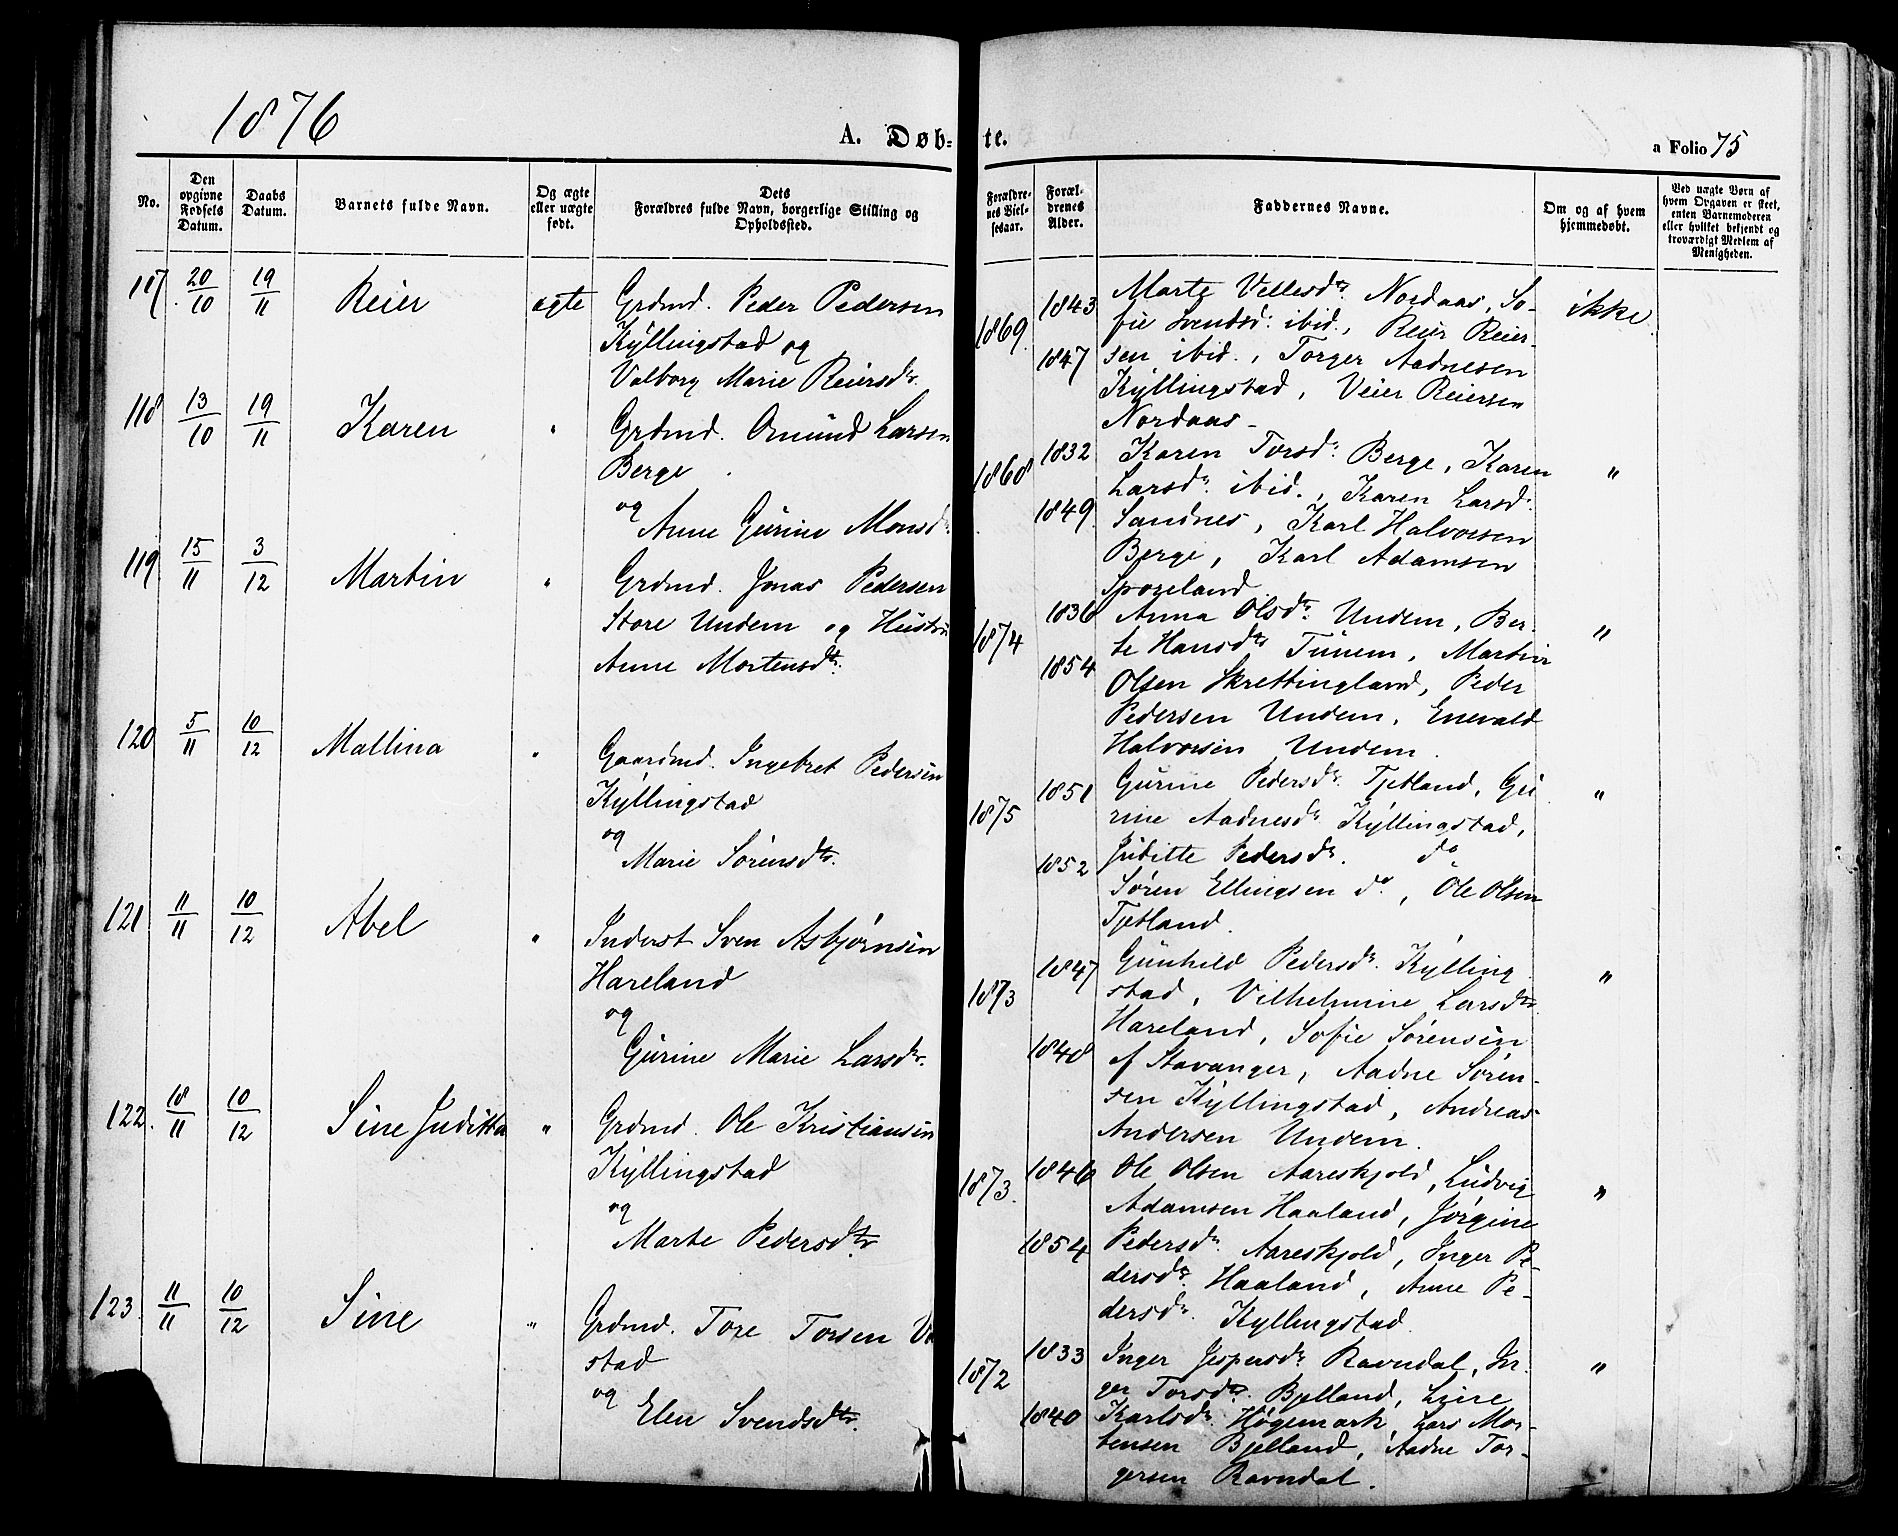 1876
A. Døb-
te.
a Folio 75
No.
Den opgivne Fødsels Datum.
Daabs Datum.
Barnets fulde Navn.
Og ægte eller uægte født.
Dets Forældres fulde Navn, borgerlige Stilling og Opholdssted.
Forældrenes Vielsesaar.
Forældrenes Alder.
Faddernes Navne.
Om og af hvem hjemmedøbt.
Ved uægte Børn af hvem Opgaven er skeet, enten Barnemoderen eller hvilket bekjendt og troværdigt Medlem af Menigheden.
117 20/10 19/11 Reier ægte Grdmd. Peder Pedersen
Kyllingstad og
Valborg Marie Reiersdtr.
1869. 1843 1847
Marte Vellesdr. Nordaas, So-
fie Svendsd: ibid., Reier Reier-
sen ibid., Torger Aadnesen
Kyllingstad, Veier Reiersen
Nordaas -
ikke.
118 13/10 19/11 Karen " Grdmd. Omund Larsen
Berge
og
Anne Gurine Monsd
1868 1832 1849.
Karen Torsd: Berge, Karen
Larsdr. ibid., Karen Larsd:
Sandnes, Karl Halvorsen
Berge, Karl Adamsen
Sporeland
"
119. 15/11 3/12 Martin " Grdmd. Jonas Pedersen
Store Undem og Hustru
Anne Mortensdtr.
1874 1836 1854
Anna Olsdr. Undem, Ber-
te Hansdtr Tunem, Martin
Olsen Skrettingland, Peder
Pedersen Undem, Enevald
Halvorsen Undem.
"
120 5/11 10/12 Mallina " Gaardmd. Ingebret Pedersen
Kyllingstad
og
Marie Sørensdtr.
1875 1851 1852
Gurine Pedersdr. Tjetland, Gu
rine Aadnesdr Kyllingstad,
Juditte Pedersdr. do
Søren Ellingsen do, Ole Olsen
Tjetland.
"
121 11/11 10/12 Abel " Inderst Sven Asbjørnsen
Hareland
og
Gurine Marie Larsdtr.
1873 1847 1840
Gunhild Pedersdr. Kylling
stad, Vilhelmine Larsdtr
Hareland, Sofie Sørensen
af Stavanger, Aadne Søren-
sen Kyllingstad, Andreas
Andersen Undem.
"
122. 18/11 10/12 Sine Juditta " Grdmd. Ole Kristiansen
Kyllingstad
og
Marte Pedersdtr
1873. 1846 1854
Ole Olsen Aareskjold, Ludvig
Adamsen Haaland, Jørgine
Pedersdr. Aareskjold, Inger Pe-
dersdr. Haaland, Anne Pe-
dersdr. Kyllingstad.
"
123. 11/11 10/12 Sine " Grdmd. Tore Torsen
stad
og
Elen Svendsdtr.
1872 1833 1840
Inger Jespersdr Ravndal, In-
ger Torsdtr. Bjelland, Line
Karlsdr. Høgemark, Lars Mor-
tensen Bjelland, Aadne Tor-
gersen Ravndal.
"